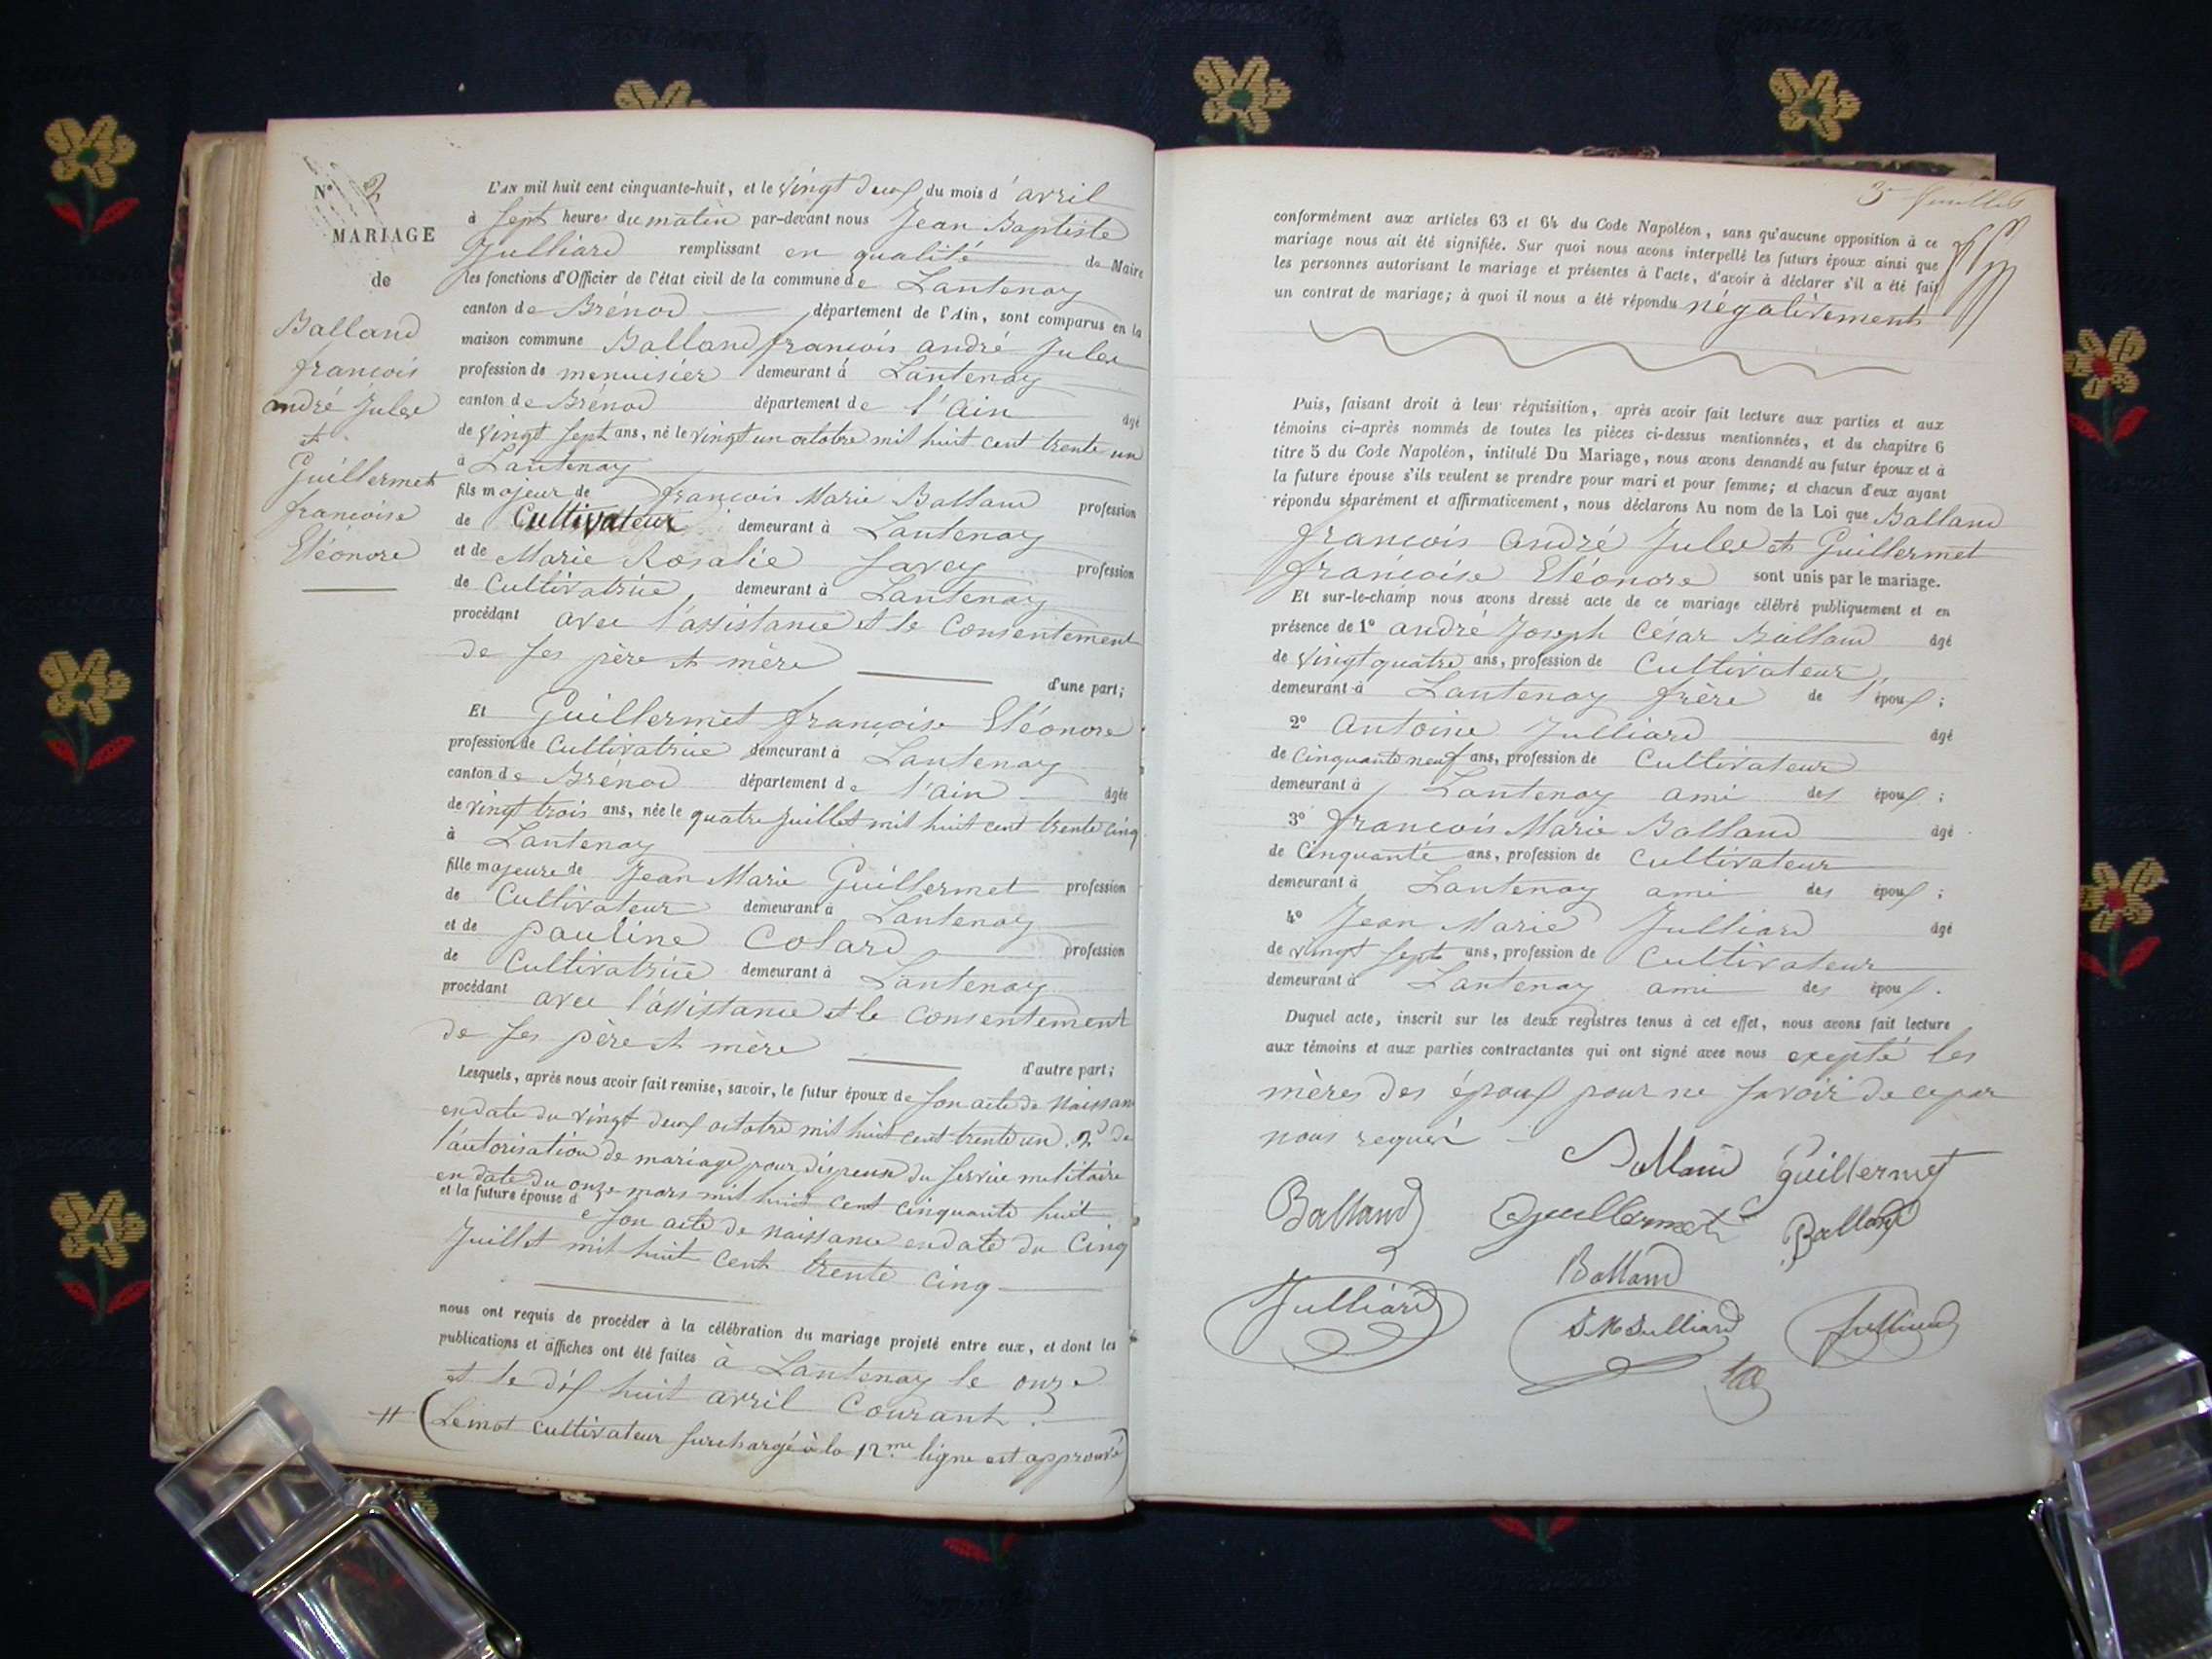 N° 2
MARIAGE
de
Balland
françois
andré Jules
et
Guillermet
françoise
Eléonore
L'AN mil huit cent cinquante-huit, et le vingt deux du mois d'avril
à sept heures du matin par-devant nous Jean Baptiste
Julliard remplissant en qualité de Maire
les fonctions d'Officier de l'état civil de la commune de Lantenay
canton de Brénod département de l'Ain, sont comparus en la
maison commune Balland françois andré Jules
profession de menuisier demeurant à Lantenay
canton de Brénod département de l'ain âgé
de vingt sept ans, né le vingt un octobre mil huit cent trente un
à Lantenay
fils majeur de françois Marie Balland profession
de Cultivateur demeurant à Lantenay
et de Marie Rosalie Savey profession
de Cultivatrice demeurant à Lantenay
procédant avec l'assistance et le consentement
de ses père et mère
d'une part;
Et Guillermet françoise Eléonore
profession de Cultivatrice demeurant à Lantenay
canton de Brénod département de l'ain âgée
de vingt trois ans, née le quatre Juillet mil huit cent trente cinq
à Lantenay
fille majeure de Jean Marie Guillermet profession
de Cultivateur demeurant à Lantenay
et de pauline Colard profession
de Cultivatrice demeurant à Lantenay
procédant avec l'assistance et le consentement
de ses père et mère
d'autre part;
Lesquels, après nous avoir fait remise, savoir, le futur époux de son acte de Naissance
en date du vingt deux octobre mil huit cent trente un. 2° de
l'autorisation de mariage pour dispense du service militaire
en date du onze mars mil huit cent cinquante huit
et la future épouse de son acte de naissance en date du Cinq
Juillet mil huit cent trente cinq
nous ont requis de procéder à la célébration du mariage projeté entre eux, et dont les
publications et affiches ont été faites à Lantenay le onze
et le dix huit avril Courant.
# (Le mot cultivateur surchargé à la 12me ligne est approuvé)
3e feuillet
conformément aux articles 63 et 64 du Code Napoléon, sans qu'aucune opposition à ce
mariage nous ait été signifiée. Sur quoi nous avons interpellé les futurs époux ainsi que
les personnes autorisant le mariage et présentes à l'acte, d'avoir à déclarer s'il a été fait
un contrat de mariage; à quoi il nous a été répondu négativement
Puis, faisant droit à leur réquisition, après avoir fait lecture aux parties et aux
témoins ci-après nommés de toutes les pièces ci-dessus mentionnées, et du chapitre 6
titre 5 du Code Napoléon, intitulé Du Mariage, nous avons demandé au futur époux et à
la future épouse s'ils veulent se prendre pour mari et pour femme; et chacun d'eux ayant
répondu séparément et affirmativement, nous déclarons Au nom de la Loi que Balland
françois andré Jules et Guillermet
françoise Eléonore sont unis par le mariage.
Et sur-le-champ nous avons dressé acte de ce mariage célébré publiquement et en
présence de 1° andré Joseph César Balland âgé
de vingt quatre ans, profession de Cultivateur
demeurant à Lantenay frère de l'époux;
2° Antoine Julliard âgé
de Cinquante neuf ans, profession de Cultivateur
demeurant à Lantenay ami des époux;
3° françois Marie Balland âgé
de Cinquante ans, profession de cultivateur
demeurant à Lantenay ami des époux;
4° Jean Marie Julliard âgé
de vingt sept ans, profession de Cultivateur
demeurant à Lantenay ami des époux.
Duquel acte, inscrit sur les deux registres tenus à cet effet, nous avons fait lecture
aux témoins et aux parties contractantes qui ont signé avec nous excepté les
mères des époux pour ne savoir de ce par
nous requis
Balland Guillermet
Balland Guillermet Balland
Balland
Julliard J M Julliard Julliard